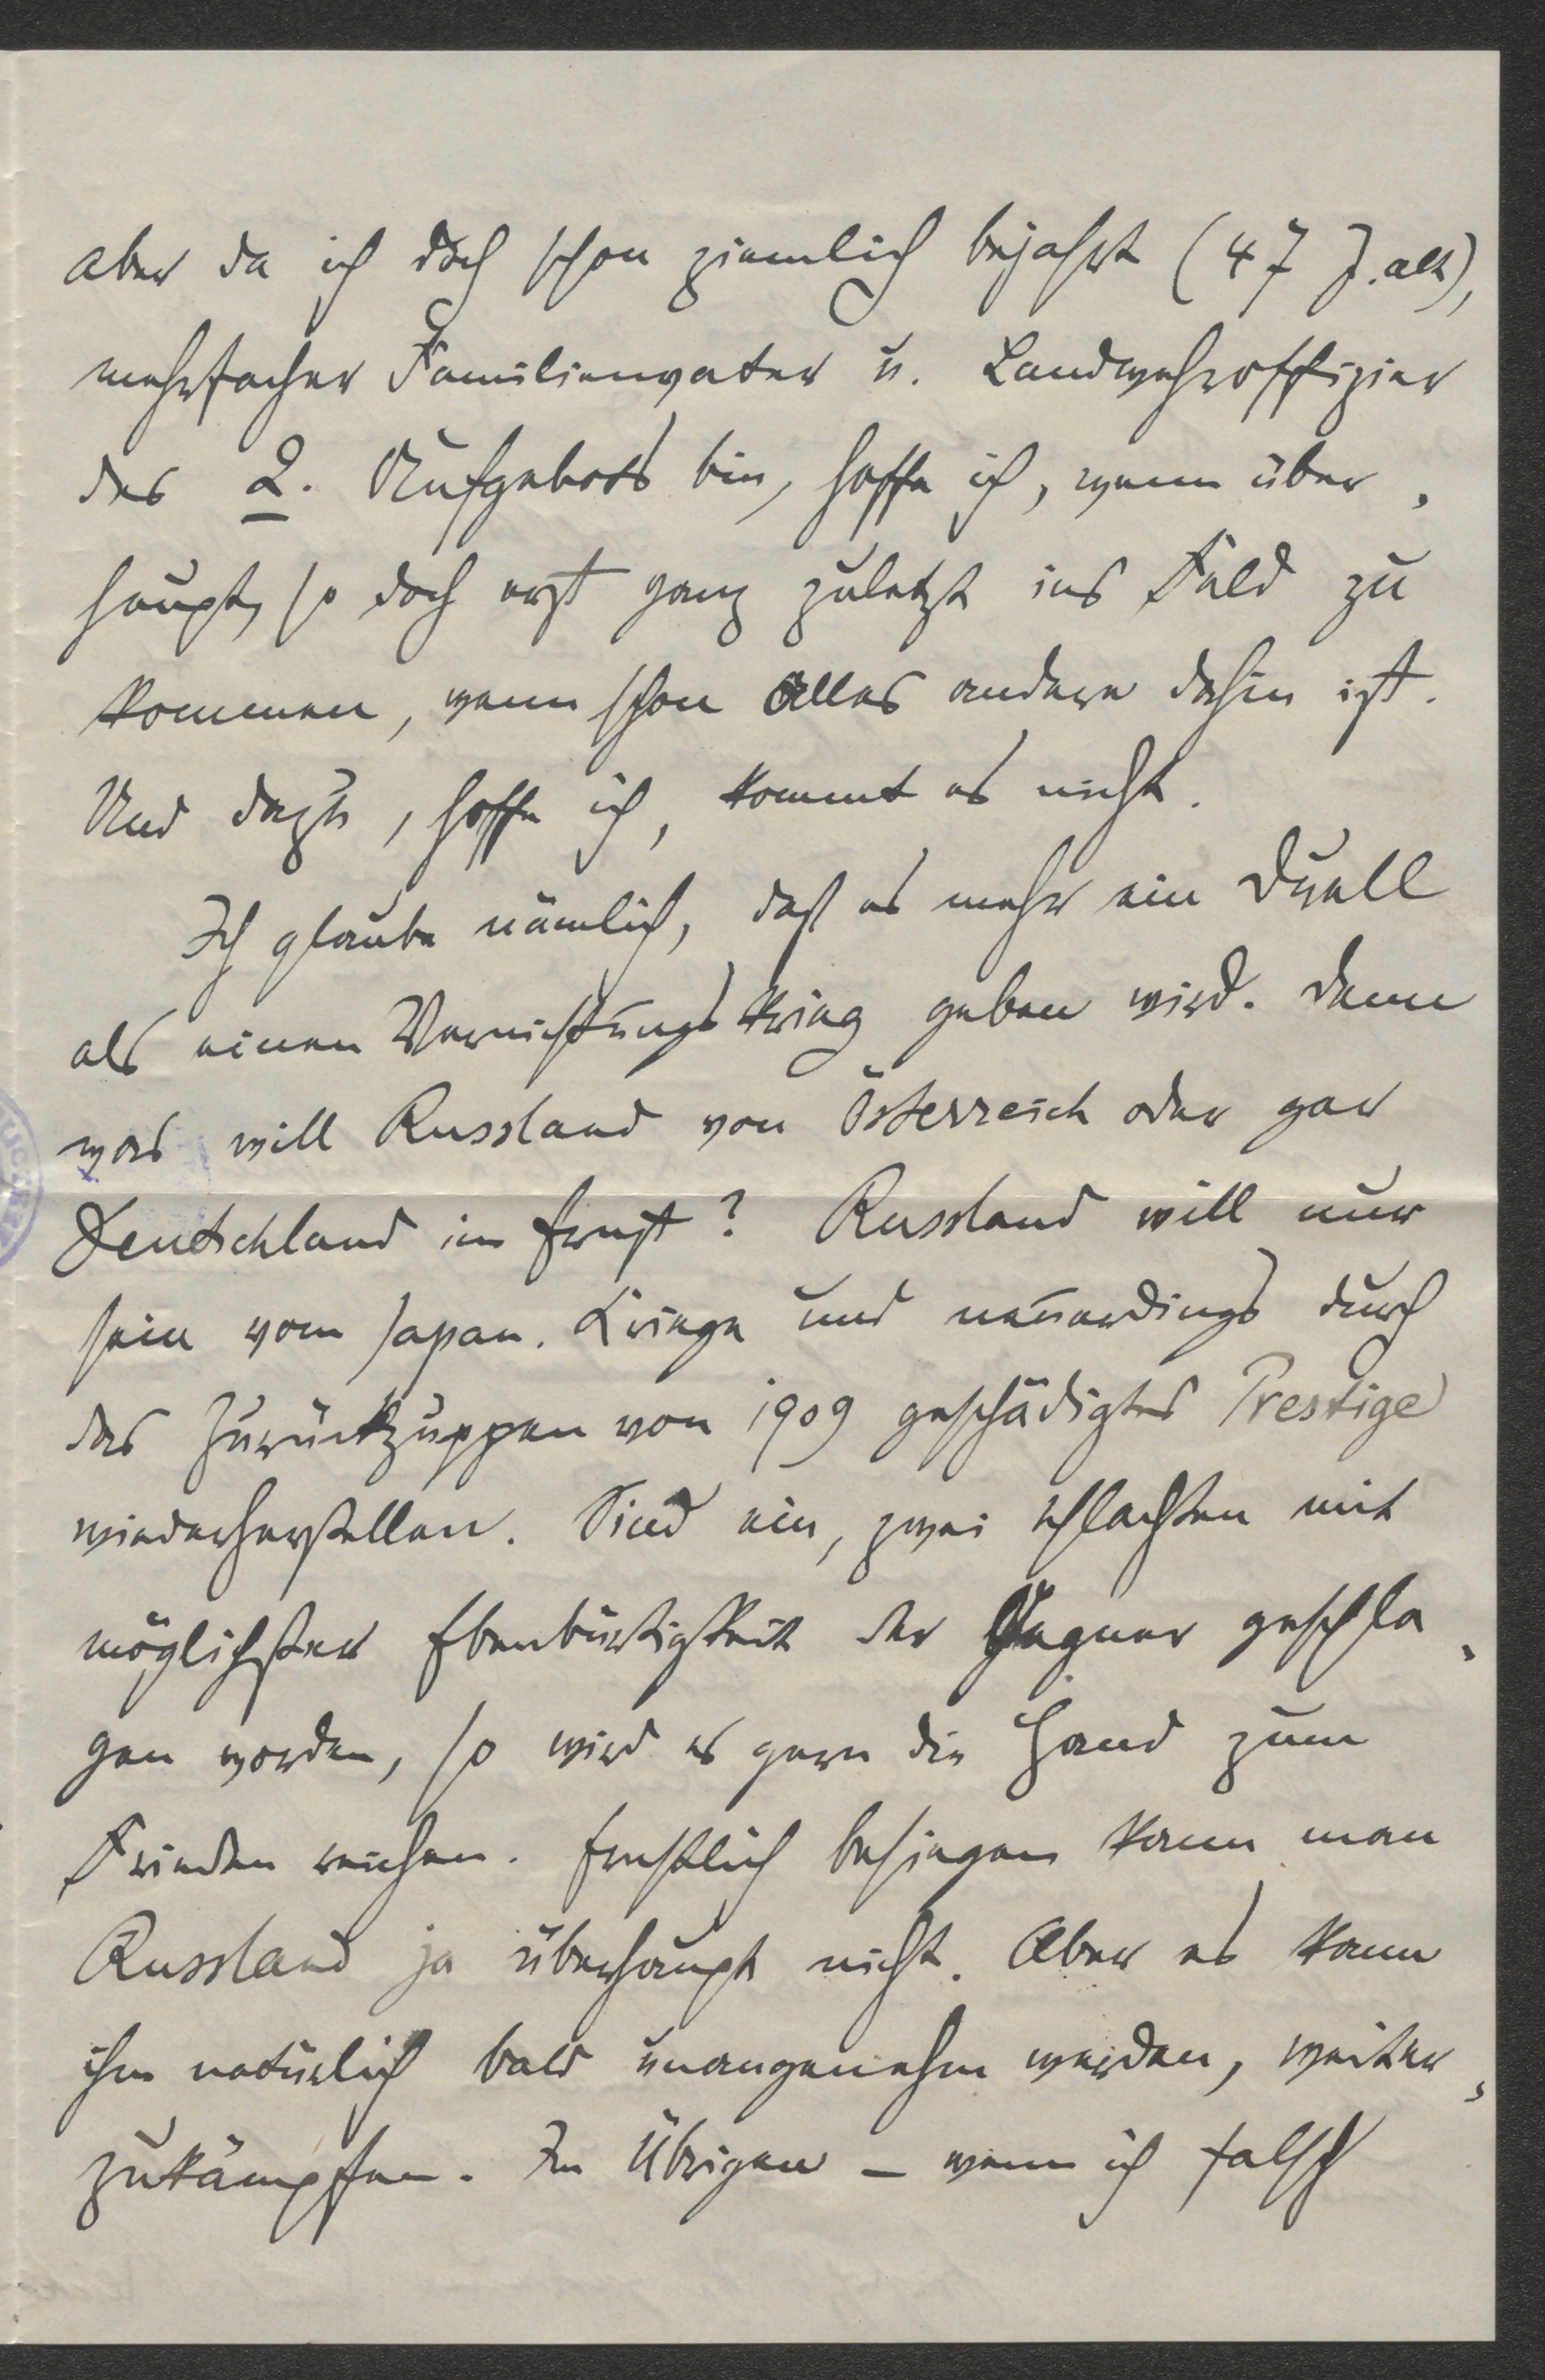 aber da ich doch schon ziemlich bejahrt (47 J. alt),
mehrfacher Familienvater u. Landwehroffizier
des 2. Aufgebots bin, hoffe ich, wenn über-
haupt, so doch erst ganz zuletzt ins Feld zu
kommen, wenn schon alles andere dahin ist.
Und dazu, hoffe ich, kommt es nicht.
Ich glaube nämlich, daß es mehr ein Duell
als einen Vernichtungskrieg geben wird. Denn
was will Russland von Österreich oder gar
Deutschland im Ernst? Russland will nur
sein vom Japan. Kriege und neuerdings durch
das Zurückzuppen von 1909 geschädigtes Prestige
wiederherstellen. Sind ein, zwei Schlachten mit
möglichster Ebenbürtigkeit der Gegner geschla-
gen worden, so wird es gern die Hand zum
Frieden reichen. Ernstlich besiegen kann man
Russland ja überhaupt nicht. Aber es kann
ihm natürlich bald unangenehm werden, weiter-
zukämpfen. Im Übrigen – wenn ich falsch